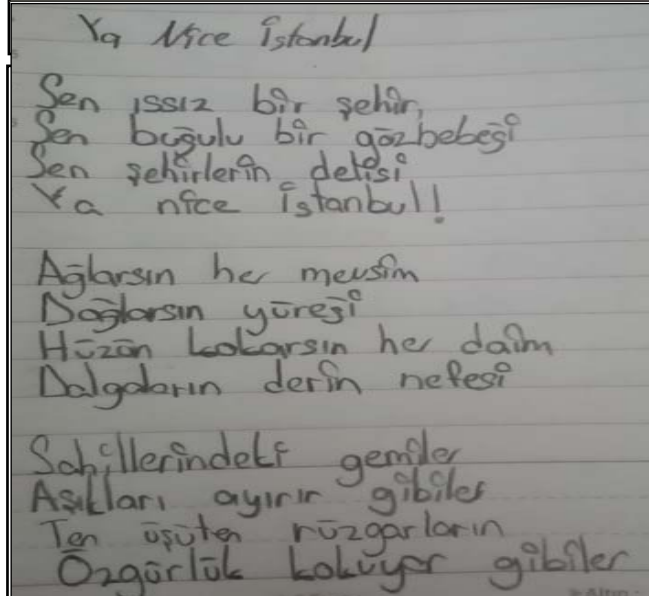 Ya Nice İstanbul
Sen ıssız bir şehir,
Sen buğulu bir gözbebeği
Sen şehirlerin delisi
Ya nice İstanbul!
Ağlarsın her mevsim
Dağlarsın yüreği
Hüzün kokarsın her daim
Dalgaların derin nefesi
Sahillerindeki gemiler
Aşıkları ayırır gibiler
Ten üşüten rüzgarların
Özgürlük kokuyor gibiler